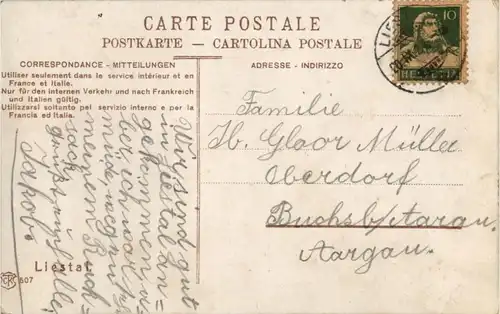 CARTE POSTALE
POSTKARTE — CARTOLINA POSTALE
CORRESPONDANCE - MITTEILUNGEN
ADRESSE - INDIRIZZO
Utiliser seulement dans le service intérieur et en
France et Italie.
Nur für den internen Verkehr und nach Frankreich
und Italien gültig.
Utilizzarsi soltanto pel servizio interno e per la
Francia ed Italia.
10
HELVETIA
Familie
Hb. Gloor Müller
Oberdorf
Buchs b/Aarau
Aargau.
Wir sind gut
in Liestal an=
gekommen
meinem Ruck=
sack
Jakob
Liestal.
607